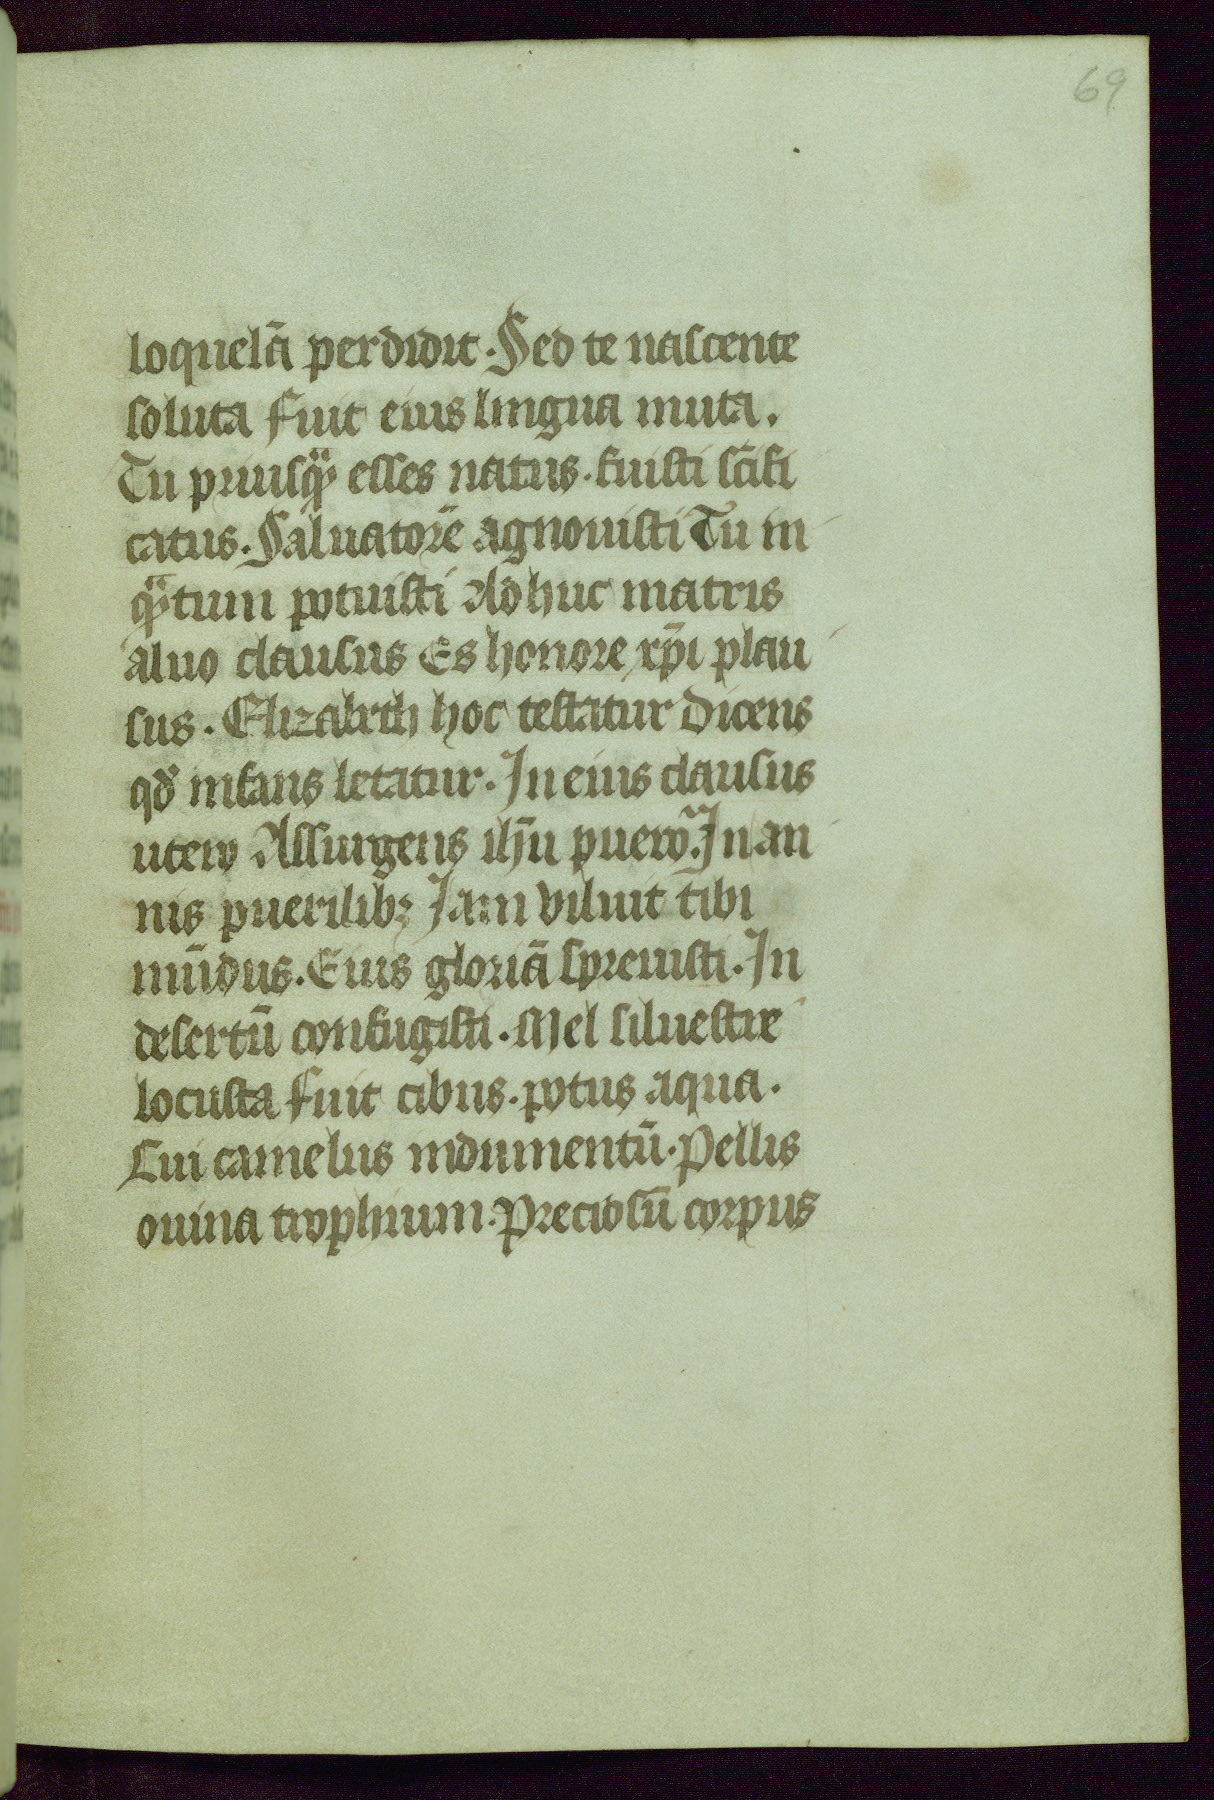 69
loquelā perdidit. Sed te nascente
soluta fuit eius lingua muta.
Tu priusqᷓ esses natus. fuisti sc̄ifi
catus. Saluatorē agnouisti Tu in
qᷓtum potuisti Adhuc matris
aluo clausus Es honore xp̄i plau
sus. Elizabeth hoc testatur dicens
qđ infans letatur. In eius clausus
utero Assurgens ihū puero. In an
nis puerilibꝫ Jam viluit tibi
mūdus. Eius gloriā spreuisti. In
desertū confugisti. Mel siluestre
locusta fuit cibus. potus aqua.
Cui camelus indumentū. Pellis
ouina trophium. Preciosū corpus